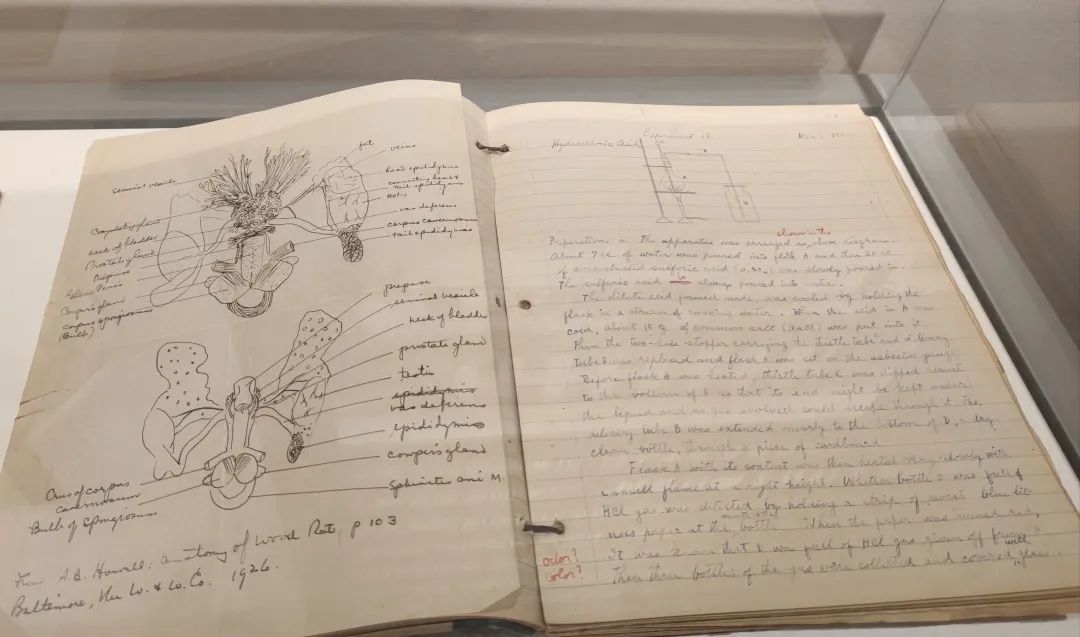 fat
veins
seminal vesicle
head epididymis
connecting head &
tail epididymis
testis
vas deferens
Coagulating gland
corpus cavernosum
neck of bladder
tail epididymis
Prostate gland
Prepuce
Glans Penis
Cowpers gland
corpus spongiosum
(Bulb)
prepuce
seminal vesicle
neck of bladder
prostate gland
testis
epididymis
vas deferens
epididymis
cowpers gland
Sphincter ani M.
Crus of corpus
cavernosum
Bulb of Spongiosum
From A.B. Howell: anatomy of Wood Rat, p 103
Baltimore, the W. & W. Co. 1926.
Experiment 12
Hydrochloric Acid
shown in the
Preparation: a. The apparatus was arranged as above diagram.
About 7 cc. of water was poured into flask A and then 20 cc
of concentrated sulforic acid (H2SO4) was slowly poured in.
The sulfuric acid is slowly poured into water.
The dilute acid formed made, was cooled by holding the
flask in a stream of running water. When the acid in A was
cold, about 15 g. of common salt (NaCl) was put into it.
Then the two-hole stopper carrying the thistle tube and delivery
tube B was replaced and flask A was set on the asbestos gauze.
Before flask A was heated, thistle tube C was dipped almost
to the bottom of A so that its end might be kept under
the liquid and no gas evolved could escape through it. The
delivery tube B was extended nearly to the bottom of D, a dry,
clean bottle, through a piece of cardboard.
Flask A with its content was then heated very slowly with
a small flame at a right height. Whether bottle D was full of
HCl gas was detected by holding a strip of moist blue lit-
mus paper at the mouth of bottle. When the paper was turned red,
it was known that D was full of HCl gas given off from A
Then three bottles of the gas were collected and covered with
glass.
odor?
color?